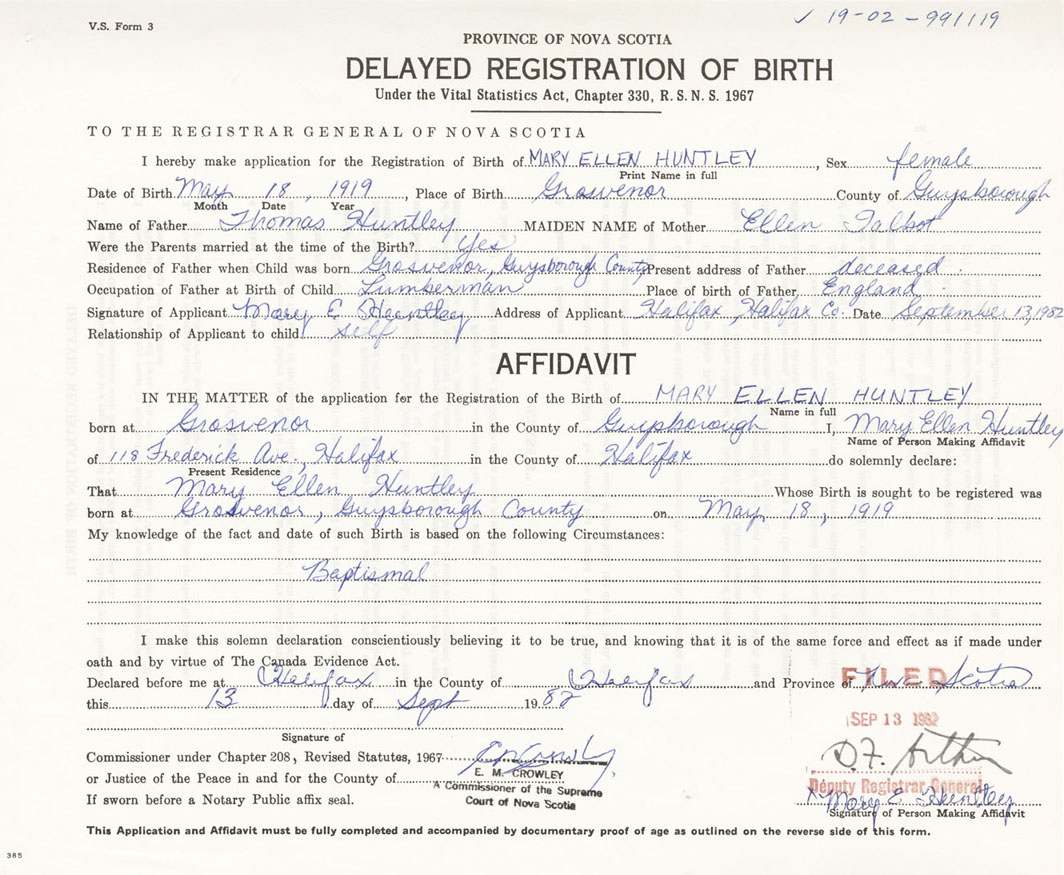 V.S. Form 3
✓ 19-02-991119
PROVINCE OF NOVA SCOTIA
DELAYED REGISTRATION OF BIRTH
Under the Vital Statistics Act, Chapter 330, R.S.N.S. 1967
TO THE REGISTRAR GENERAL OF NOVA SCOTIA
I hereby make application for the Registration of Birth of MARY ELLEN HUNTLEY, Sex female
Print Name in full
Date of Birth May 18, 1919, Place of Birth Grosvenor County of Guysborough
Month Date Year
Name of Father Thomas Huntley MAIDEN NAME of Mother Ellen Talbot
Were the Parents married at the time of the Birth? Yes
Residence of Father when Child was born Grosvenor, Guysborough County Present address of Father deceased.
Occupation of Father at Birth of Child Lumberman Place of birth of Father England
Signature of Applicant Mary E Huntley Address of Applicant Halifax, Halifax Co. Date September 13, 1982
Relationship of Applicant to child self
AFFIDAVIT
IN THE MATTER of the application for the Registration of the Birth of MARY ELLEN HUNTLEY
Name in full
born at Grosvenor in the County of Guysborough I, Mary Ellen Huntley
Name of Person Making Affidavit
of 118 Frederick Ave., Halifax in the County of Halifax do solemnly declare:
Present Residence
That Mary Ellen Huntley Whose Birth is sought to be registered was
born at Grosvenor, Guysborough County on May 18, 1919
My knowledge of the fact and date of such Birth is based on the following Circumstances:
Baptismal
I make this solemn declaration conscientiously believing it to be true, and knowing that it is of the same force and effect as if made under
oath and by virtue of The Canada Evidence Act.
Declared before me at Halifax in the County of Halifax and Province of Nova Scotia
FILED
this 13 day of Sept 1982
SEP 13 1982
Signature of
Commissioner under Chapter 208, Revised Statutes, 1967
or Justice of the Peace in and for the County of
E. M. CROWLEY
A Commissioner of the Supreme
Court of Nova Scotia
D.F. Arthur
Deputy Registrar General
Mary E Huntley
If sworn before a Notary Public affix seal.
Signature of Person Making Affidavit
This Application and Affidavit must be fully completed and accompanied by documentary proof of age as outlined on the reverse side of this form.
385